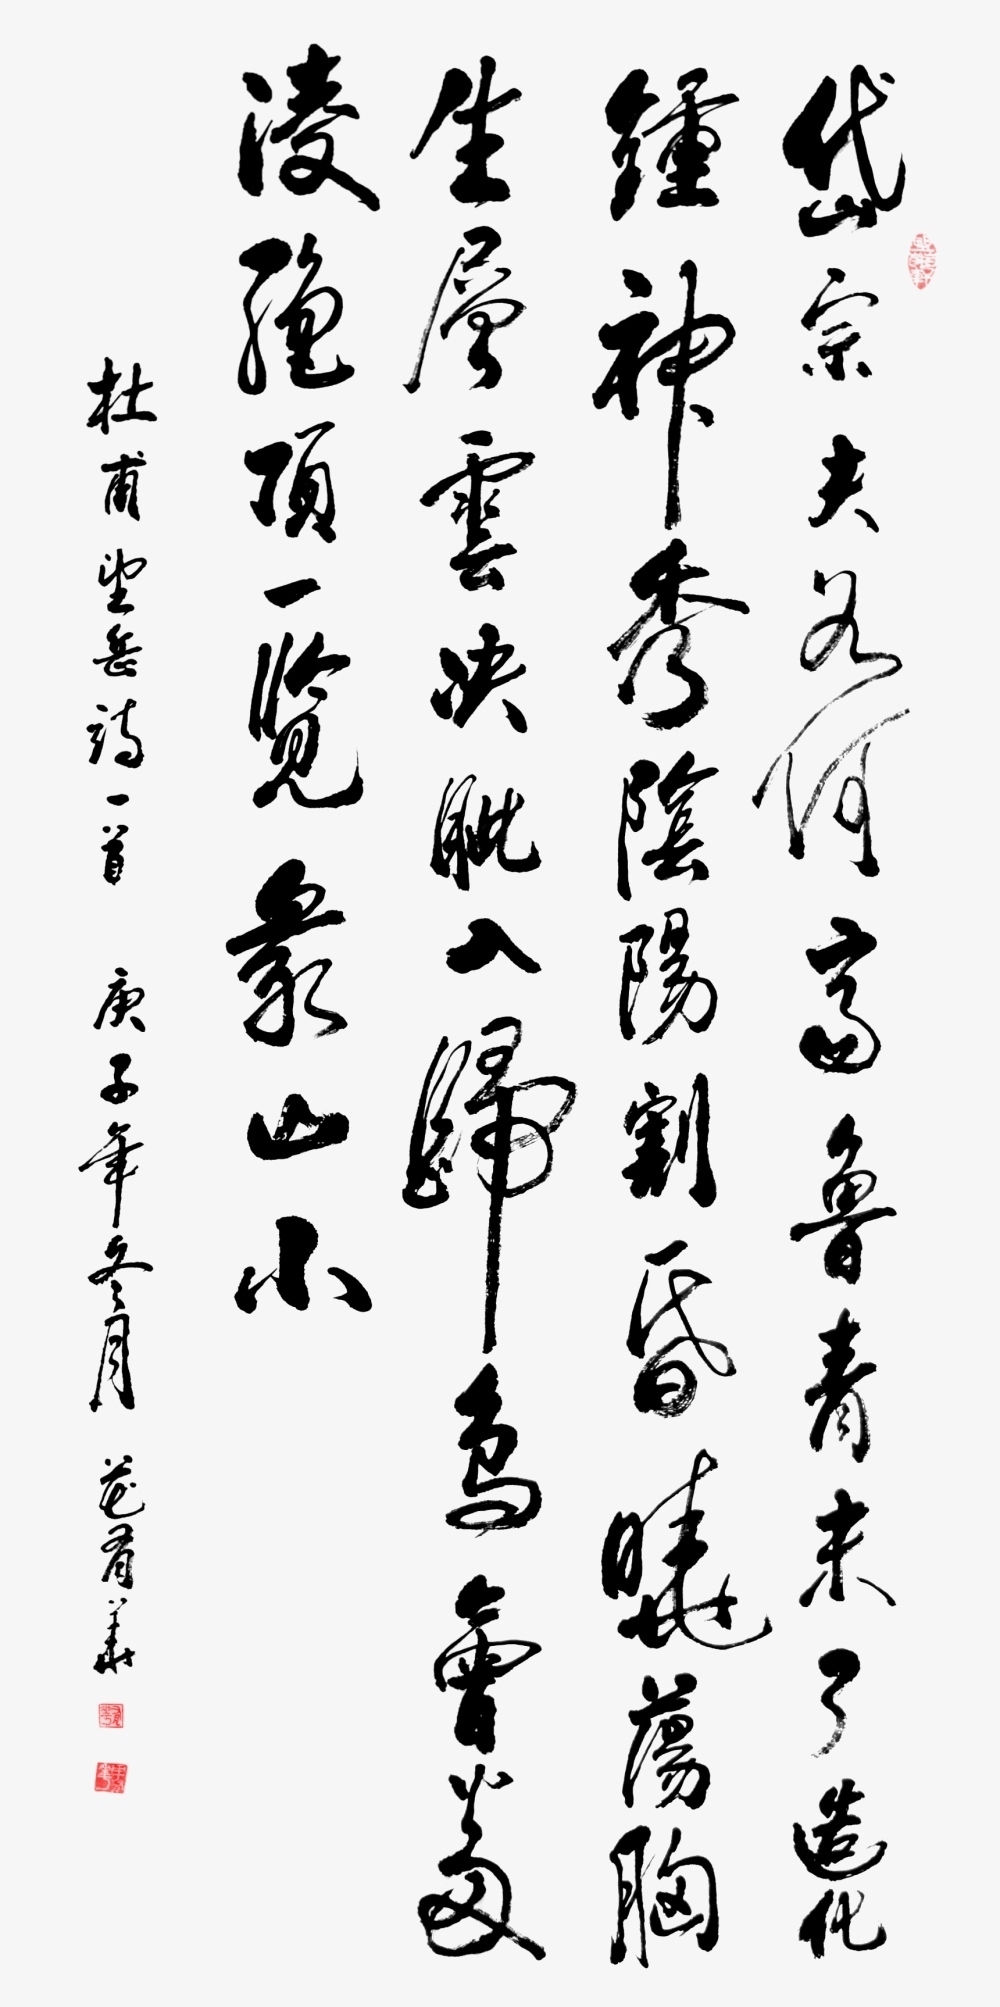 岱宗夫如何齊魯青未了造化
鍾神秀陰陽割昏曉蕩胸
生層雲決眦入歸鳥會當
淩絕頂一覽衆山小
杜甫望岳詩一首 庚子年冬月 范有華